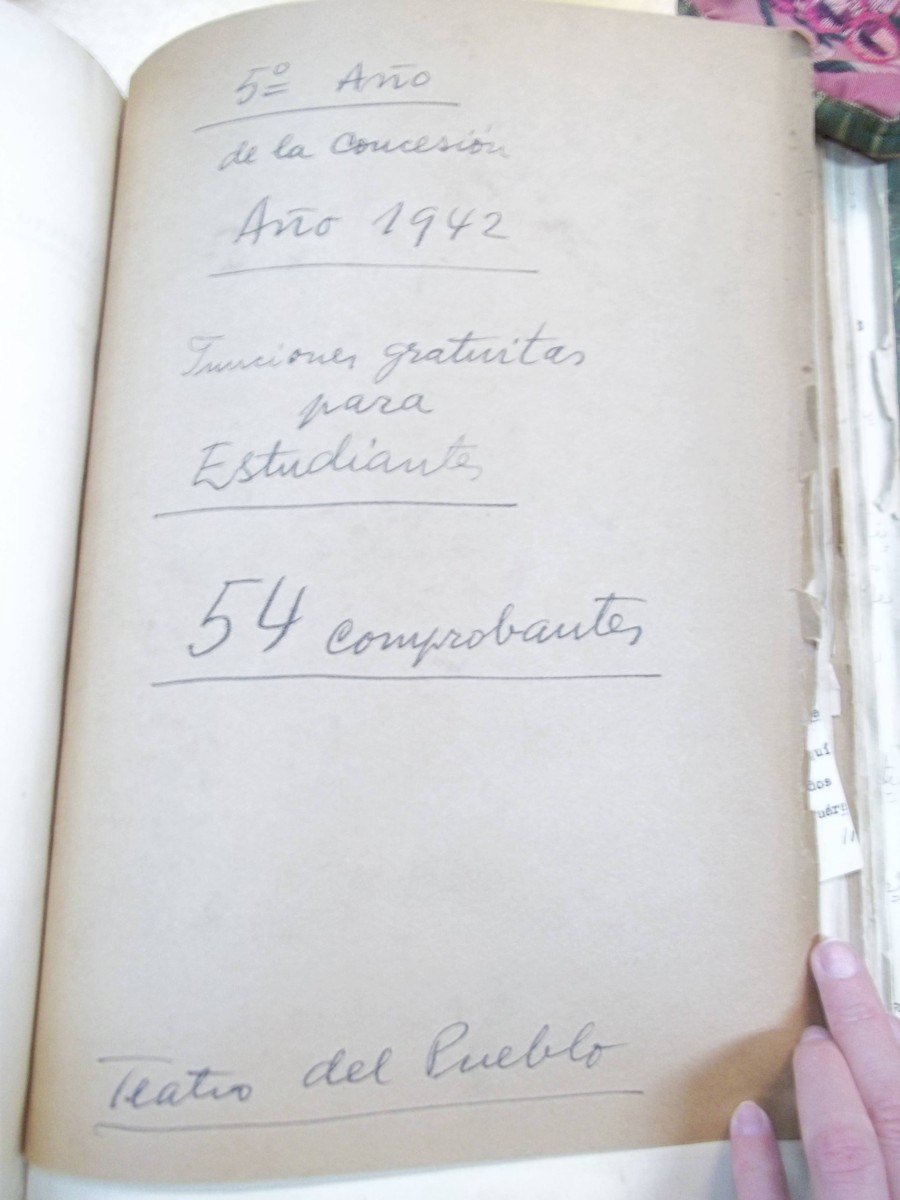 5º Año
de la Concesión
Año 1942
Funciones gratuitas
para
Estudiantes
54 comprobantes
Teatro del Pueblo
uí
dos